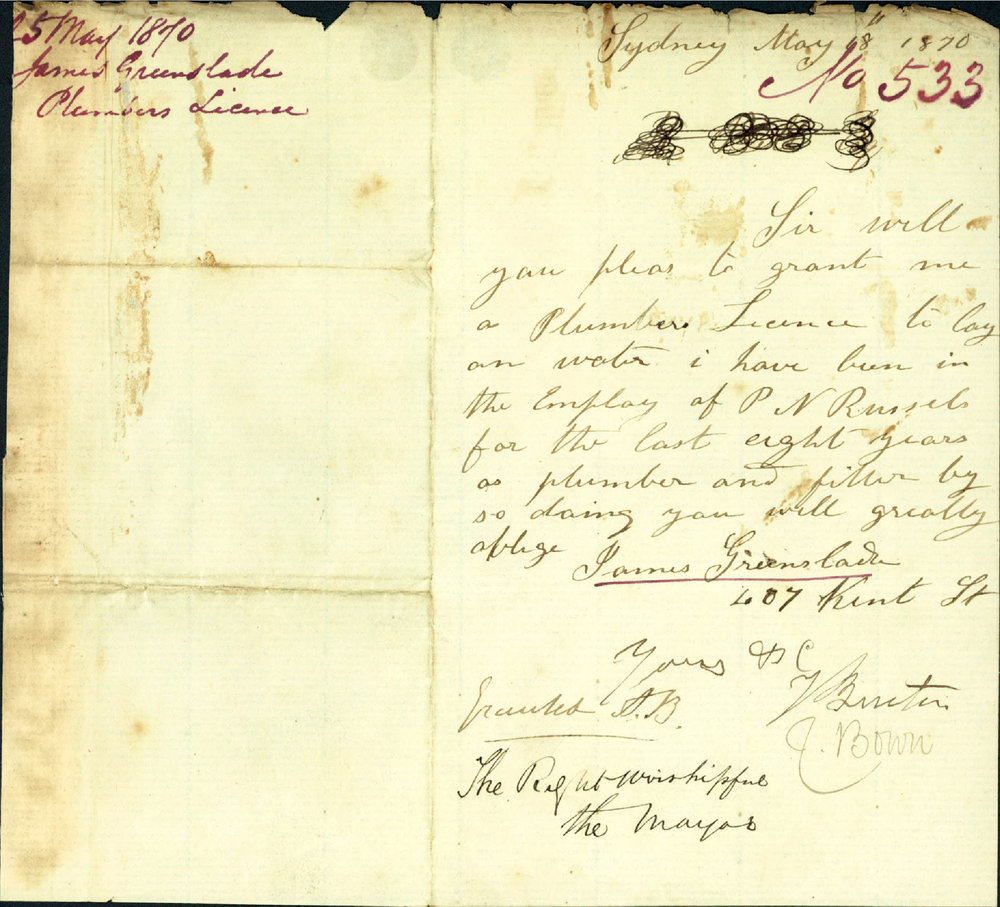 25 May 1870
James Greenslade
Plumbers Licence
Sydney May 18th 1870
No 533
Sir will
you pleas to grant me
a Plumbers Licence to lay
on water i have been in
the Employ of P N Russels
for the last eight years
as plumber and fitter by
so doing you will greatly
oblige James Greenslade
407 Kent St
Yours &c
Granted
The Right Worshipful
the Mayor